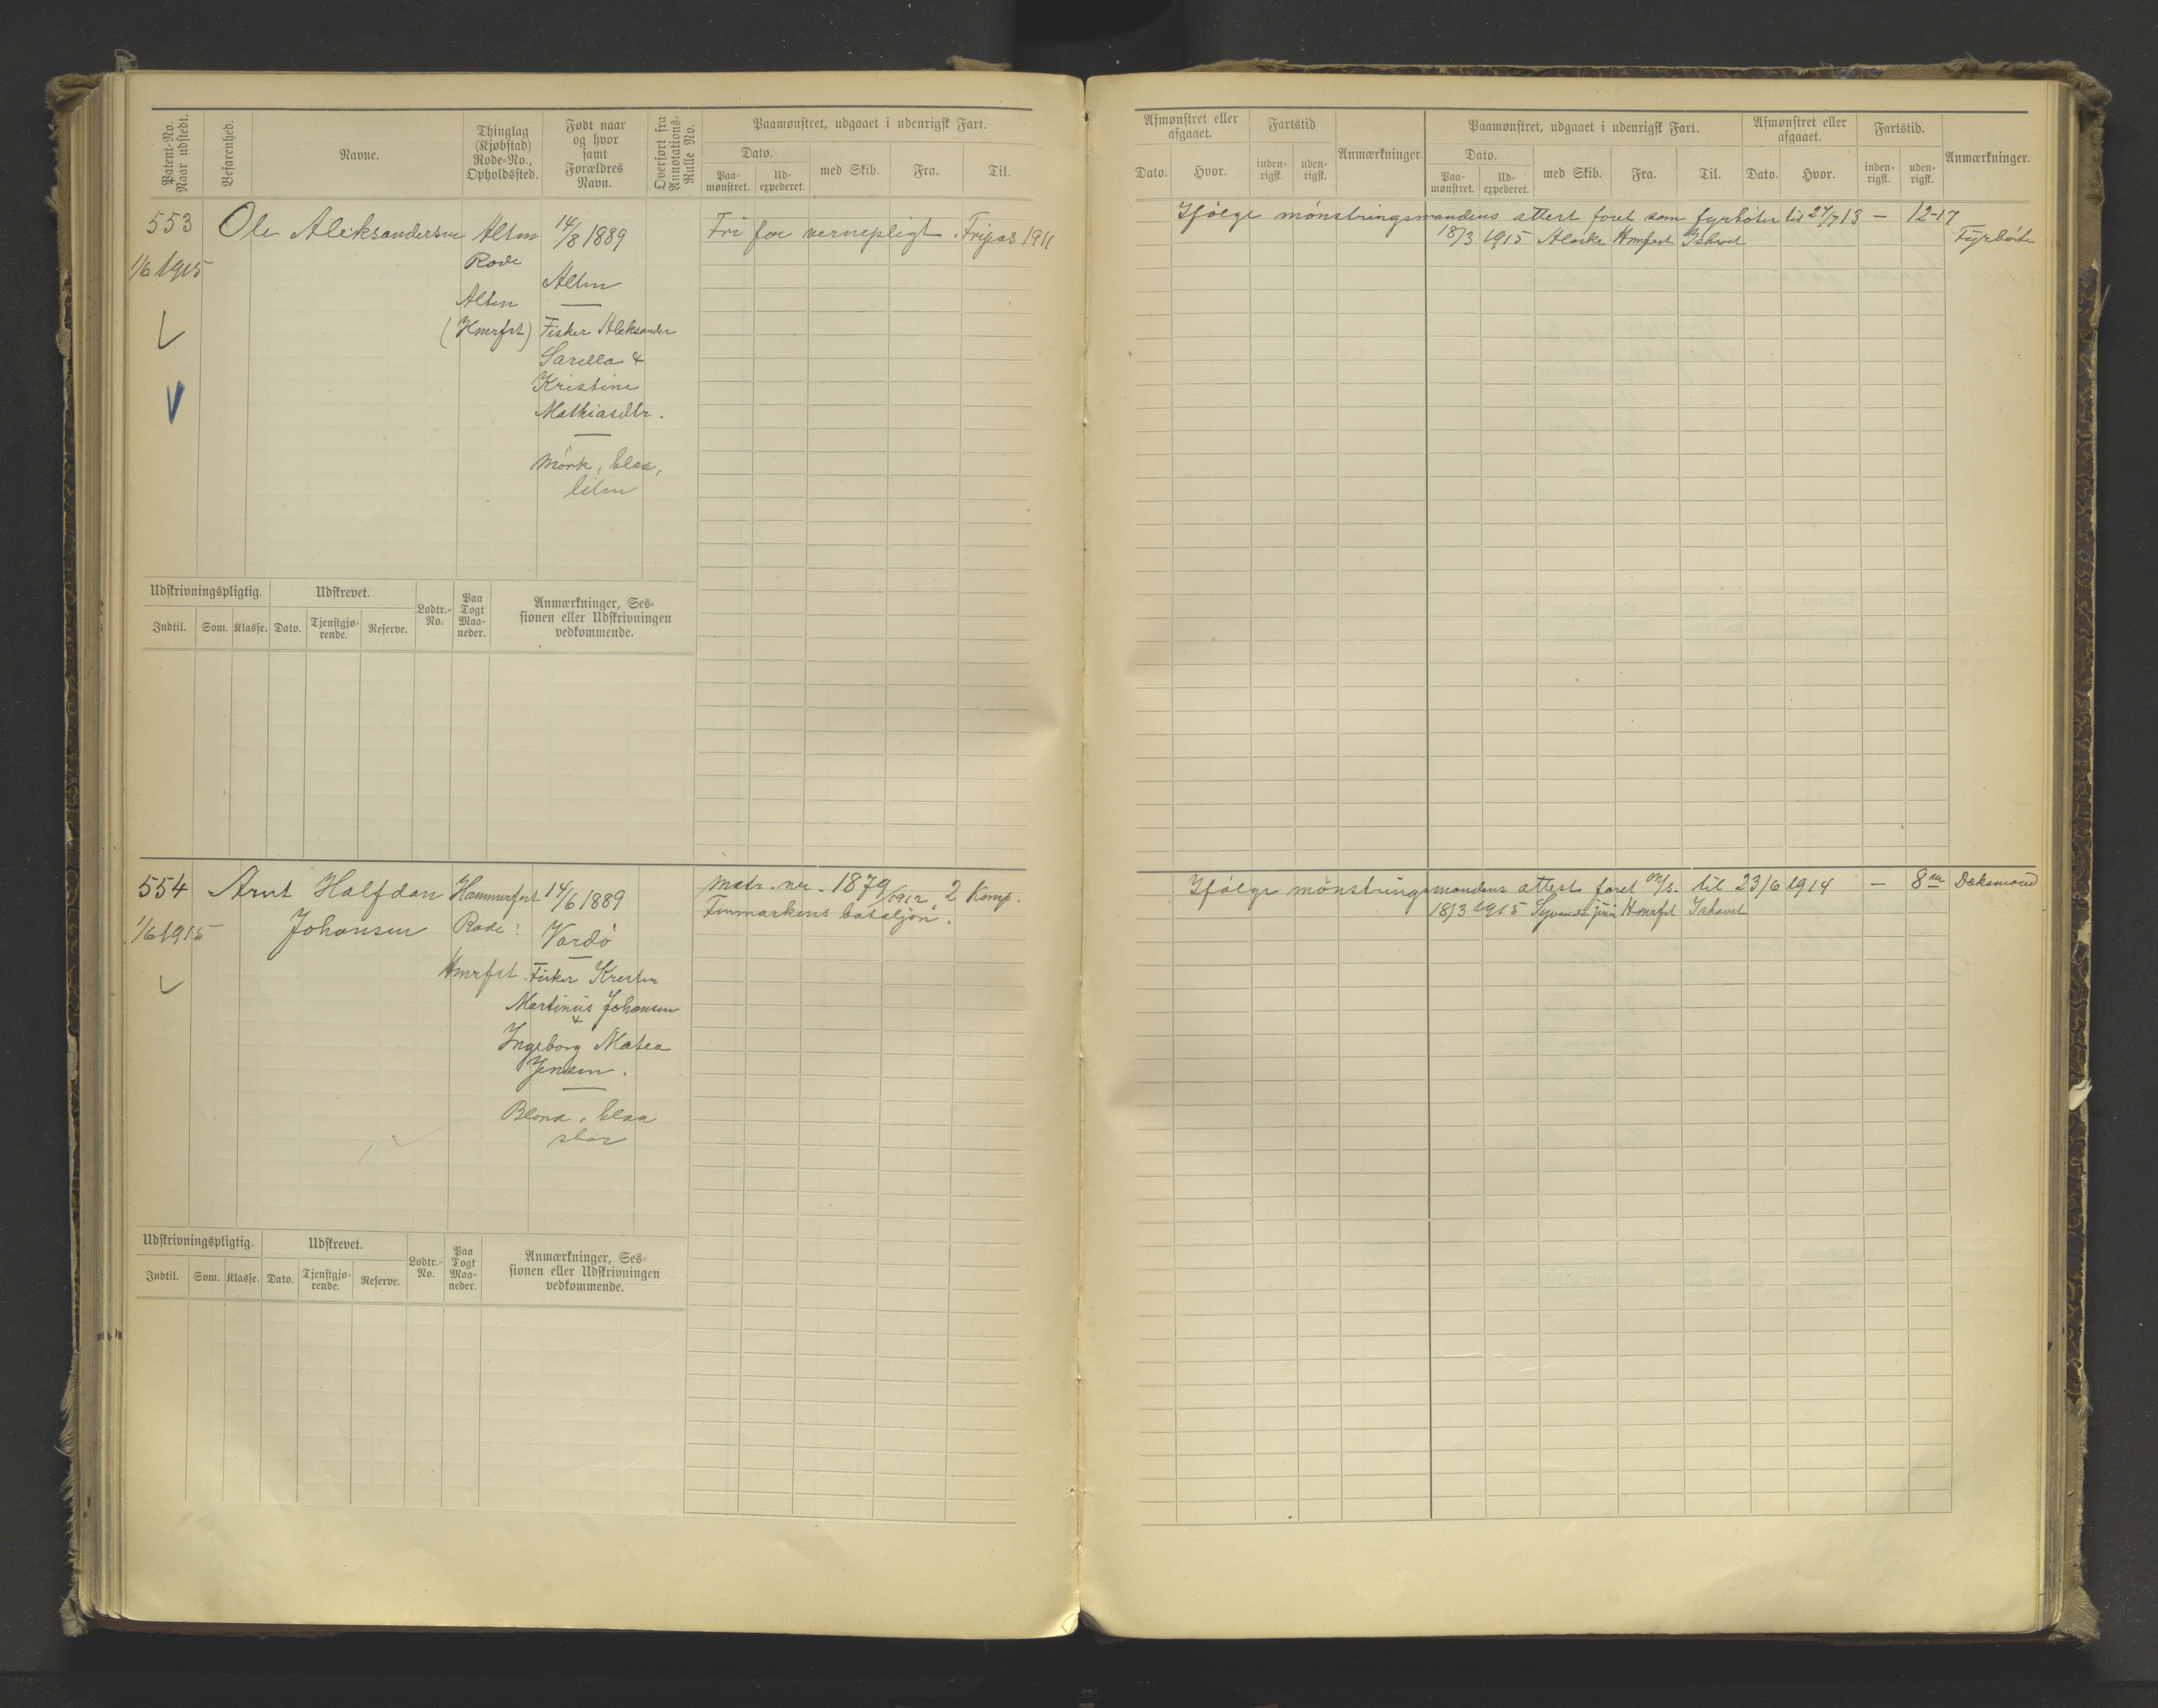 Patent-No. Naar udstedt.
Befarenhed.
Navne.
Thinglag (Kjøbstad) Rode-No., Opholdssted.
Født naar og hvor samt Forældres Navn.
Overført fra Annotations-Rulle No.
Paamønstret, udgaaet i udenrigsk Fart.
Dato.
Paa-mønstret.
Ud-expederet.
med Skib.
Fra.
Til.
553
1/6 1915
Ole Aleksandersen
Alten
Rode
Alten
(Hmrfst)
14/8 1889
Alten
Fisker Aleksander
Sarilla &
Kristine
Mathiasdtr.
Mørk, blaa,
liten
Fri for vernepligt. Fripas 1911
Udskrivningspligtig.
Udskrevet.
Lodtr.-No.
Paa Togt Maa-neder.
Anmærkninger, Ses-
sionen eller Udskrivningen
vedkommende.
Indtil.
Som.
Klasse.
Dato.
Tjenstgjø-rende.
Reserve.
554
1/6 1915
Arnt Halfdan
Johansen
Hammerfest
Rode:
Hmrfst.
14/6 1889
Vardø
Fisker Kresten
Martinius Johansen
&
Ingeborg Matea
Jensen.
Blond, blaa
stor
Matr. nr. 1879/1912, 2 Komp.
Finmarkens bataljon.
Udskrivningspligtig.
Udskrevet.
Lodtr.-No.
Paa Togt Maa-neder.
Anmærkninger, Ses-
sionen eller Udskrivningen
vedkommende.
Indtil.
Som.
Klasse.
Dato.
Tjenstgjø-rende.
Reserve.
Afmønstret eller afgaaet.
Fartstid
Anmærkninger.
Paamønstret, udgaaet i udenrigsk Fart.
Afmønstret eller afgaaet.
Fartstid.
Anmærkninger.
Dato.
Hvor.
inden-rigsk.
uden-rigsk.
Dato.
Paa-mønstret.
Ud-expederet.
med Skib.
Fra.
Til.
Dato.
Hvor.
inden-rigsk.
uden-rigsk.
Ifølge mønstringsmandens attest faret som fyrbøter til 27/7 13 — 12-17
18/3 1915 Alaska Hmfest Ishavet
Fyrbøter
Ifølge mønstringsmandens attest faret m/s. til 23/6 1914 — 8 m Dæksmand
18/3 1915 Syvende juni Hmrfst Ishavet